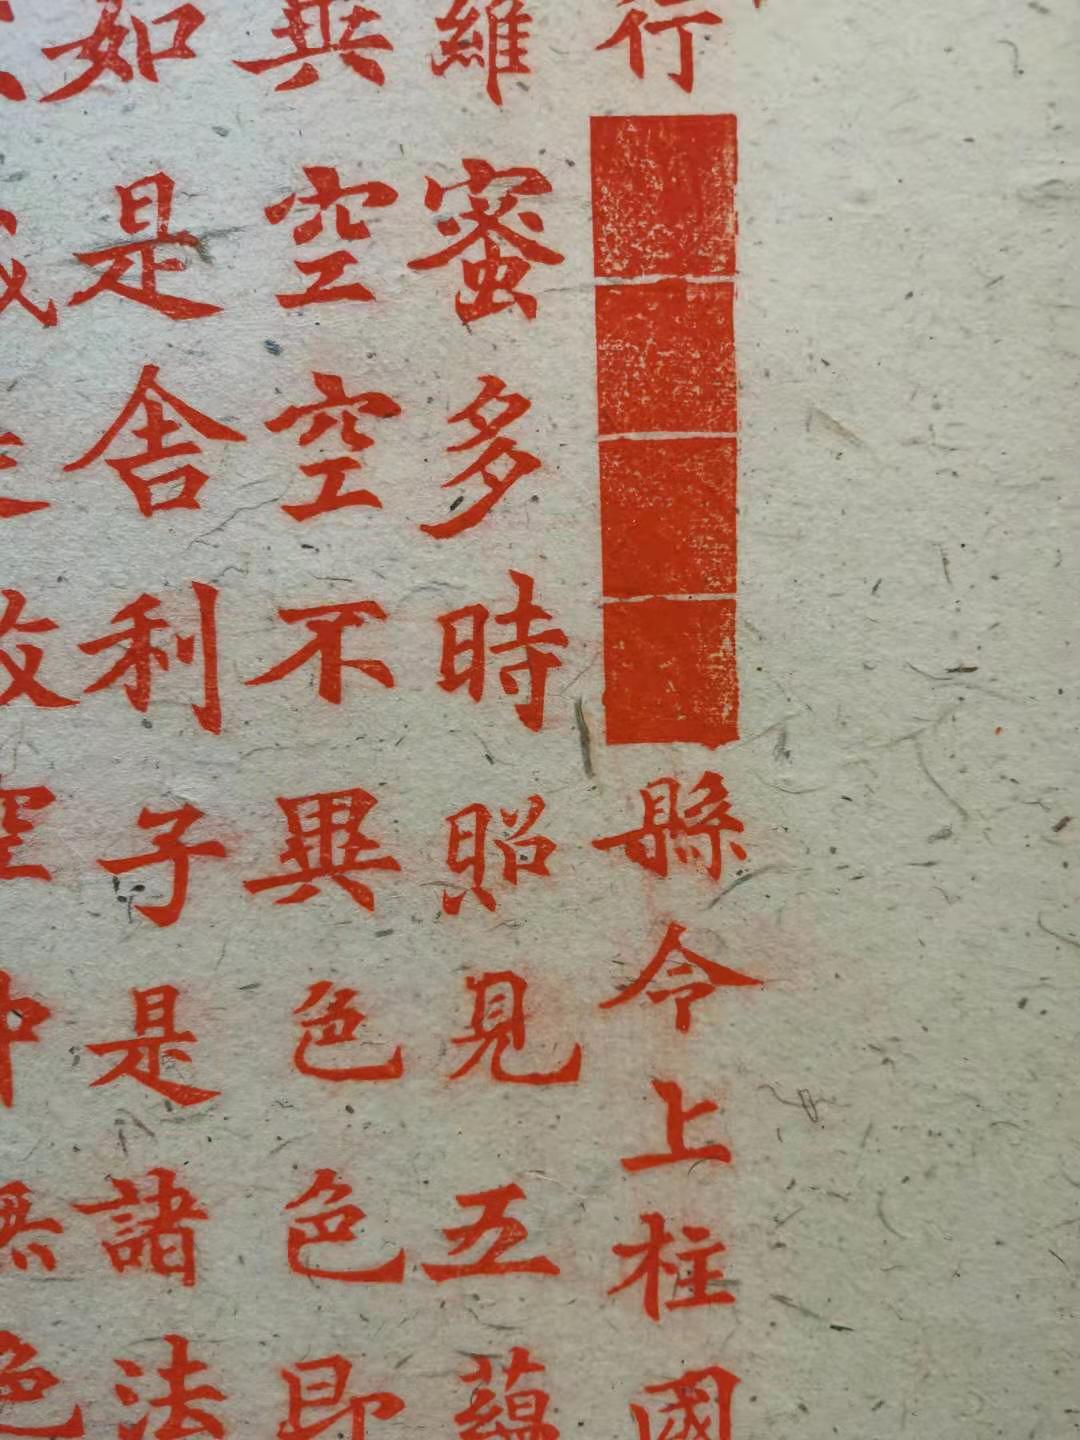 行縣令上柱國
羅蜜多時照見五蘊
異空空不異色色即
如是舍利子是諸法
減是故空中無色